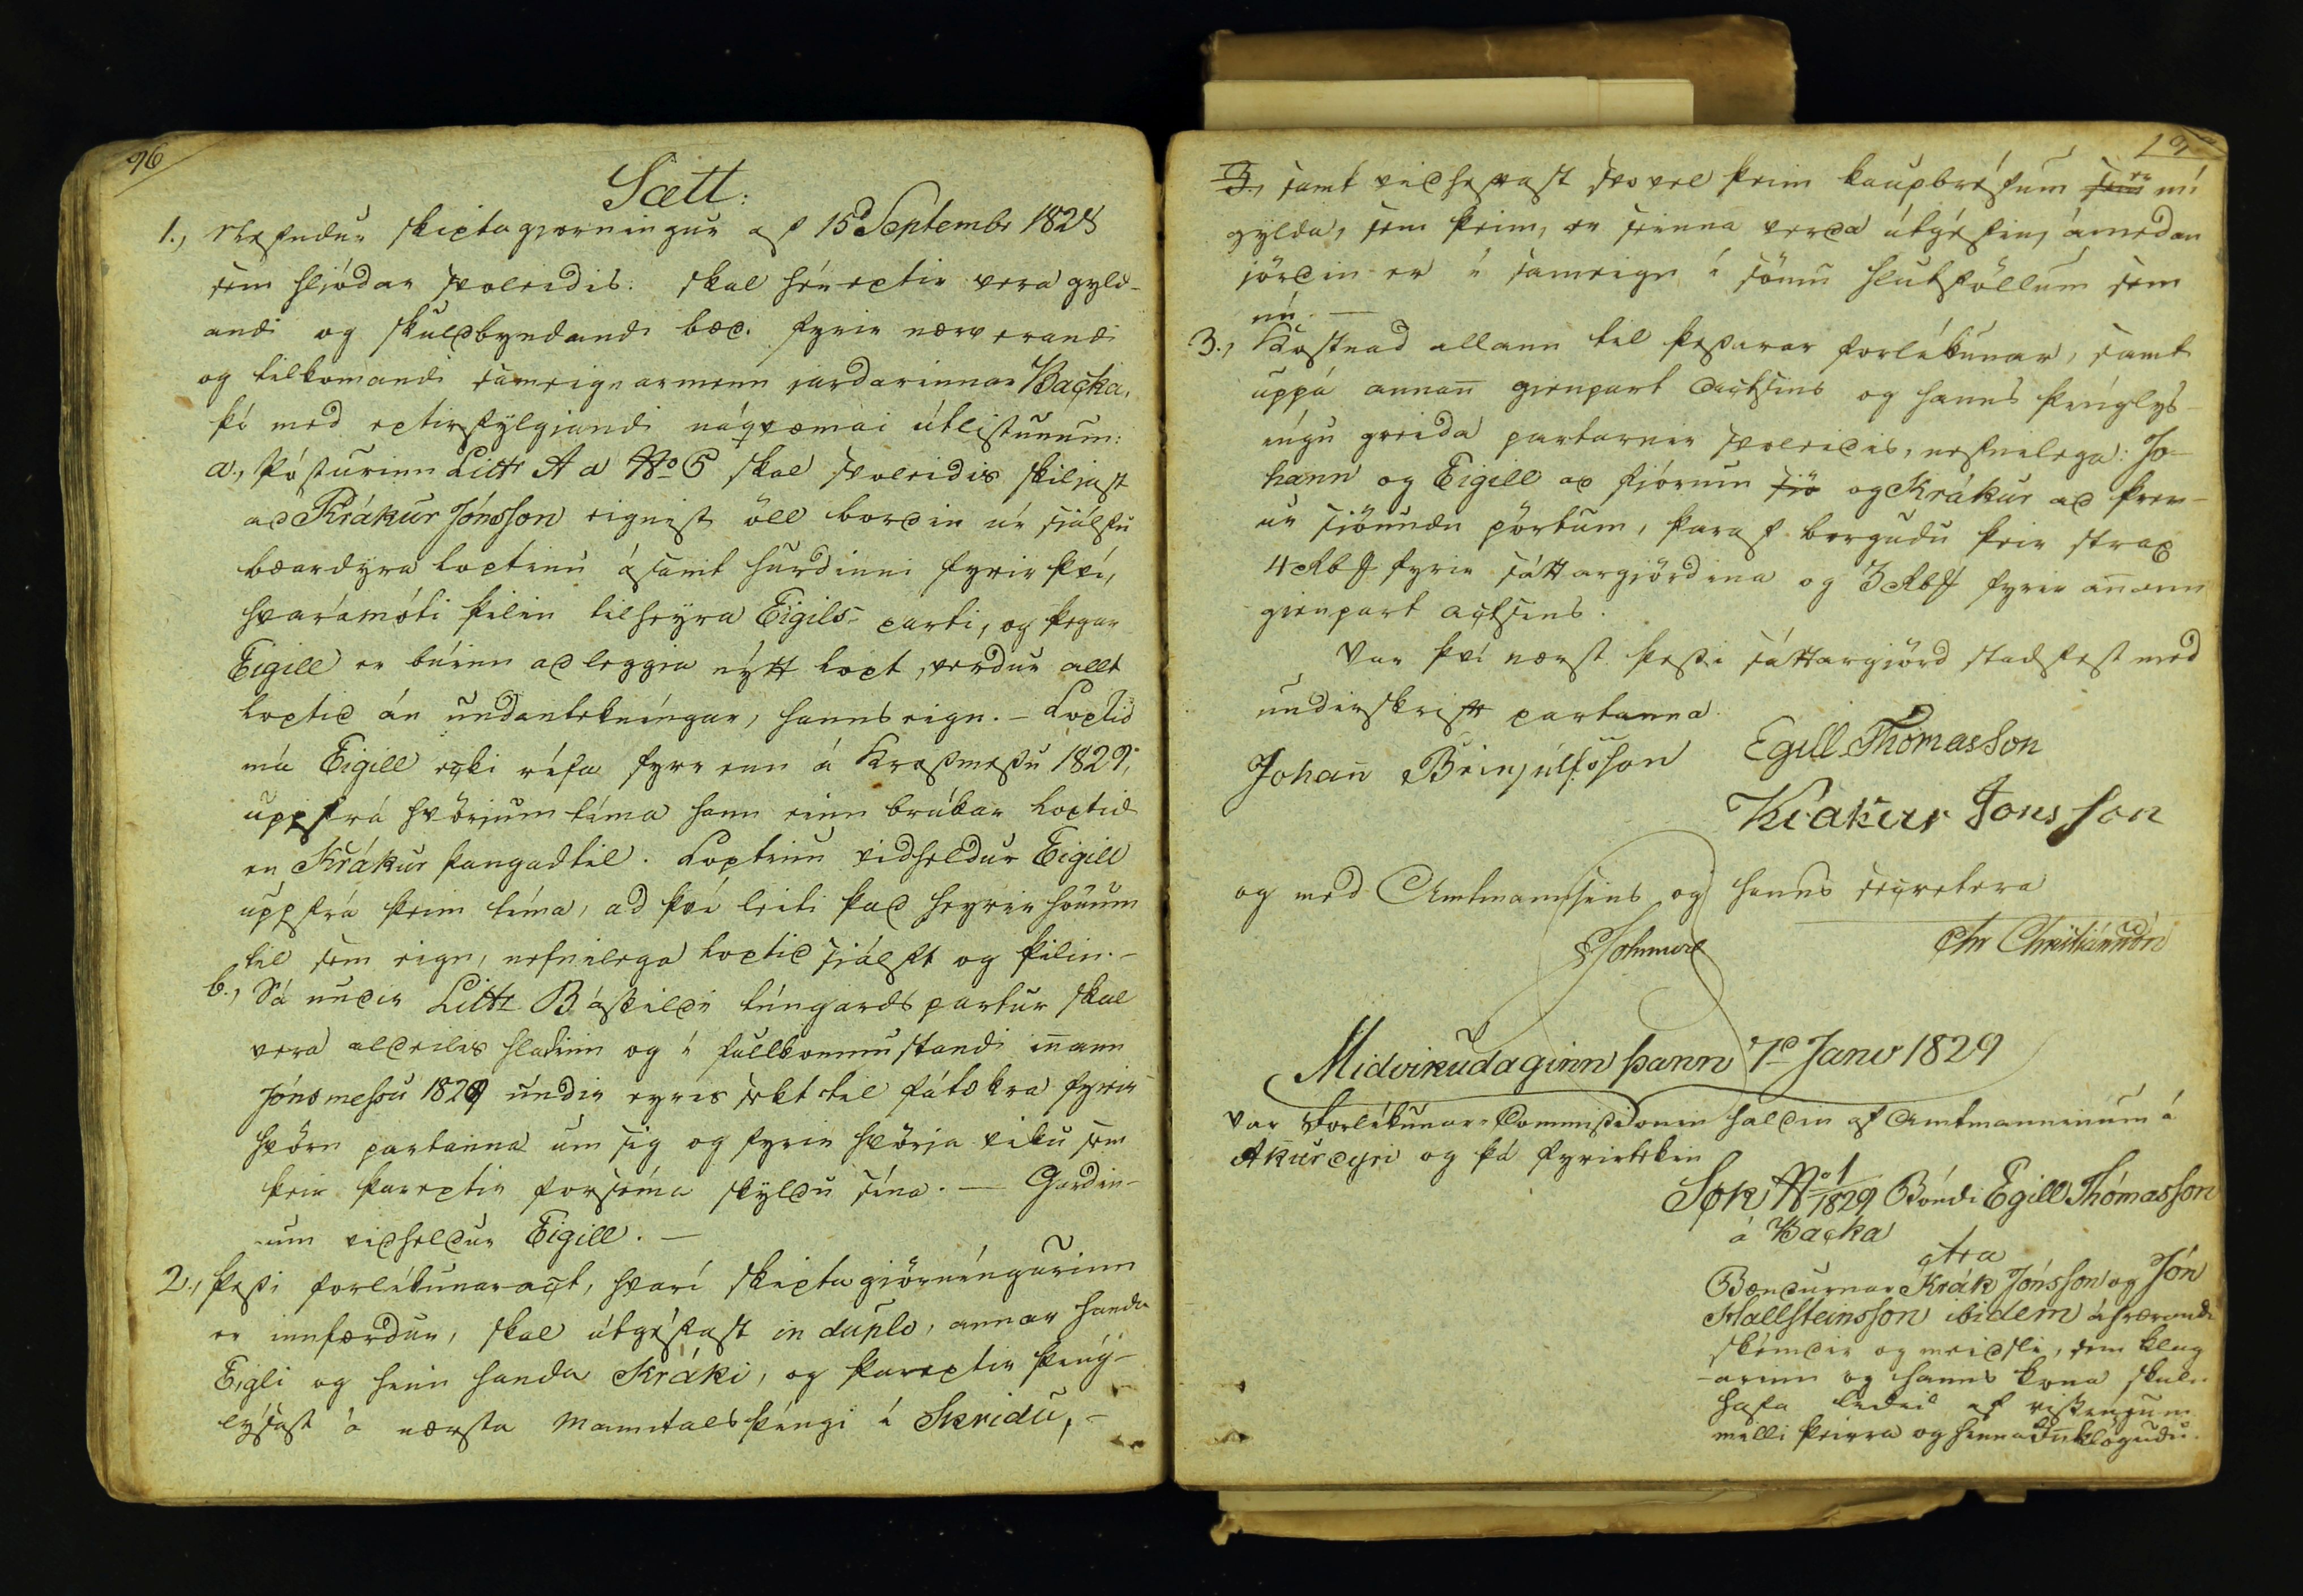 96
Sætt:
1., Nefndur skiptagjorníngur af 15d Septembr 1828
sem hljódar svoleidis: skal héreptir vera gyld-
andi og skuldbyndandi bædi fyrir nærverandi
og tilkomandi sameignarmenn jardarinnar Backa,
þó med eptirfylgjandi náqvæmari útlistunum:
a., Pósturinn Littr A a No 5 skal svoleidis skiljast
ad Krákur Jónsson eignist öll bordin úr sjálfu
bæardyra loptinu ásamt hurdinni fyrir því,
hvarámóti þilin tilheyra Eigils parti, og þegar
Eigill er búinn ad leggia nýtt lopt, verdur allt
loptid án undantekníngar, hanns eign. – Loptid
má Eigill ecki rífa fyrr enn á Krossmessu 1829,
uppfrá hvörjum tíma hann einn brúkar loptid
en Krákur þangadtil. Loptinu vidheldur Eigill
uppfrá þeim tíma, ad því leiti þad heyrir hönum
til sem eign, nefnilega loptid sjálft og þilin. –
b., Sá undir Littr B áskildi túngards partur skal
vera aldeilis hladinn og í fullkomnu standi innann
Jónsmessu 1829 undir eyris sekt til fátækra fyrir
hvörn partanna um sig og fyrir hvörja viku sem
þeir þareptir forsóma skyldu sína. — Gardin-
um vidheldur Eigill. —
2., Þessi forlíkunaract, hvarí skiptagjörníngurinn
er innfærdur, skal útgéfast in duplo, annar handa
Eigli og hinn handa Kráki, og þareptir þíng-
lýsast á næsta Manntalsþíngi í Skridu, –
3., samt vidheftast svo vel þeim kaupbréfum sem er nú
gylda, sem þeim, er seinna verda útgéfin, ámedan
jördin er í sameign í sömu hlutföllum sem
nú. —
3., Kostnad allann til þessarar forlíkunar, samt
uppá annan gienpart actsins og hanns þínglýs-
íngu greida partarnir svoleidis, nefnilega: Jo-
hann og Eigill ad fjórum sjö og Krákur ad þrem-
ur sjöundu pörtum, þaraf borgudu þeir strax
4 Rbd fyrir sáttargjördina og 3 Rbd fyrir annann
gienpart actsins.
Var því næst þessi sáttargjörd stadfest med
underskrift partanna.
Johan Brinjúlfsson Egill Thómasson
Krakur Jonsson
og med Amtmannsins og hanns secretera
GJohnsen Chr Christiánsson
Midvikudaginn þann 7d Janv 1829
var Forlíkunar-Commissionin haldin af Amtmanninum á
Akureyri og þá fyrirtekin
Søk No 1/1829 Bóndi Egill Thómasson
á Backa
ctra
Bændurnar Krák Jónsson og Jón
Hallsteinsson ibidem áhrærandi
skémdir og meidsli, sem klag-
-arinn og hanns kona skulu
hafa lidid af riskingum
milli þeirra og hinna innklögudu.